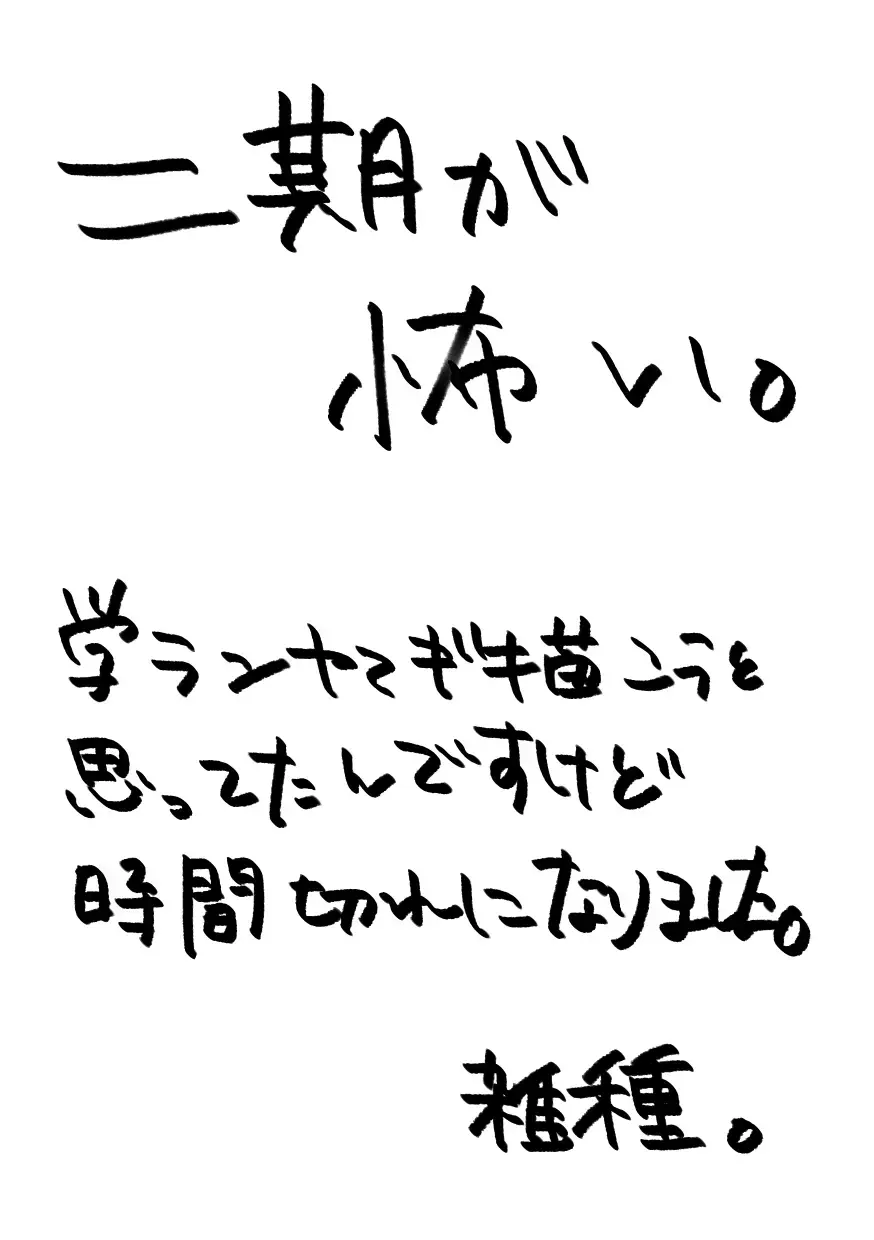 二期が
怖い。
学ランヤてギ描こうと
思ってたんですけど
時間切れになりました。
雑種。